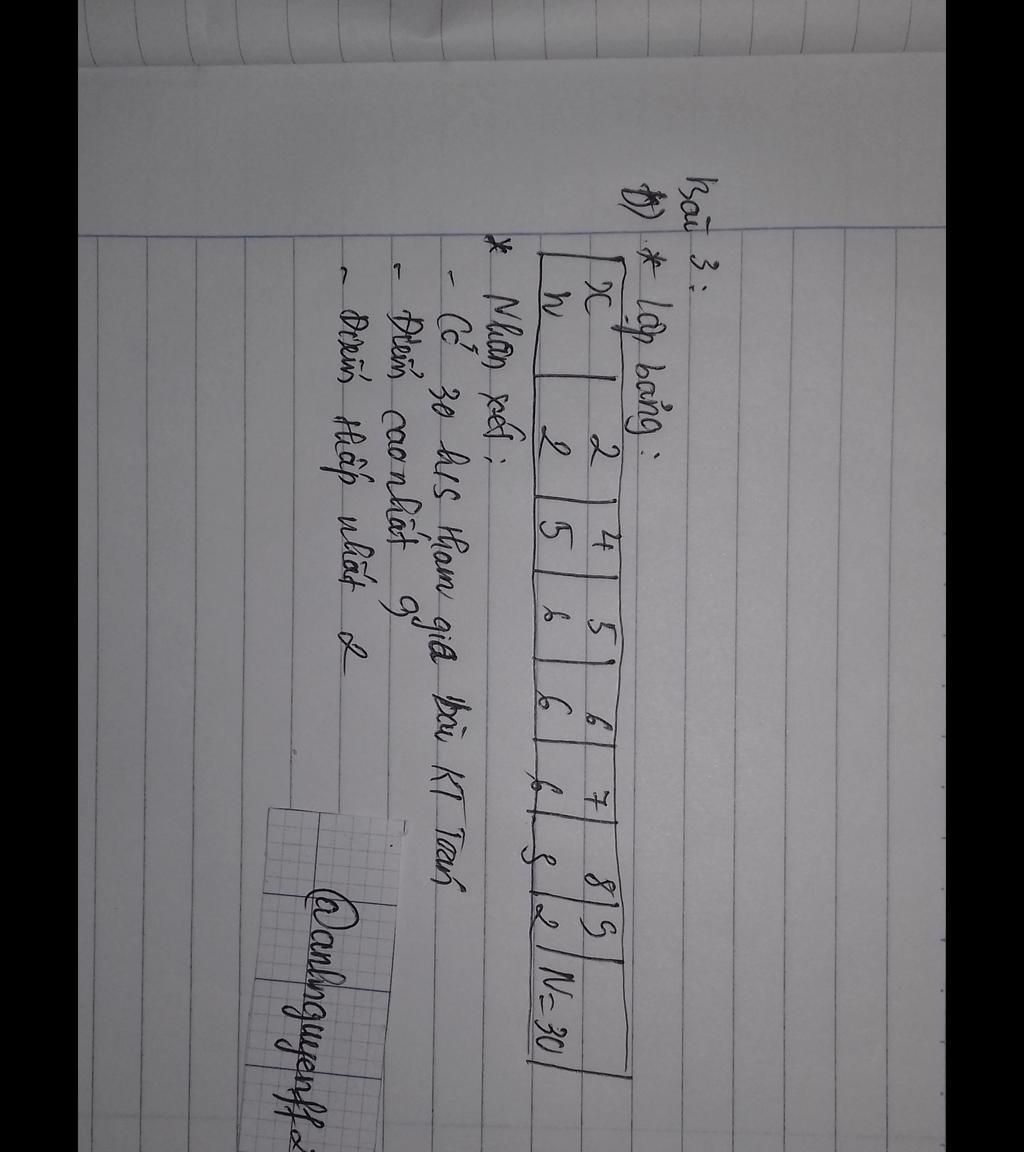 Bài 3:
b) * Lập bảng:
x 2 4 5 6 7 8 9
n 2 5 6 6 6 3 2 N=30
* Nhận xét:
- Có 30 h/s tham gia bài KT Toán
- Điểm cao nhất 9
- Điểm thấp nhất 2
@anhnguyenff2